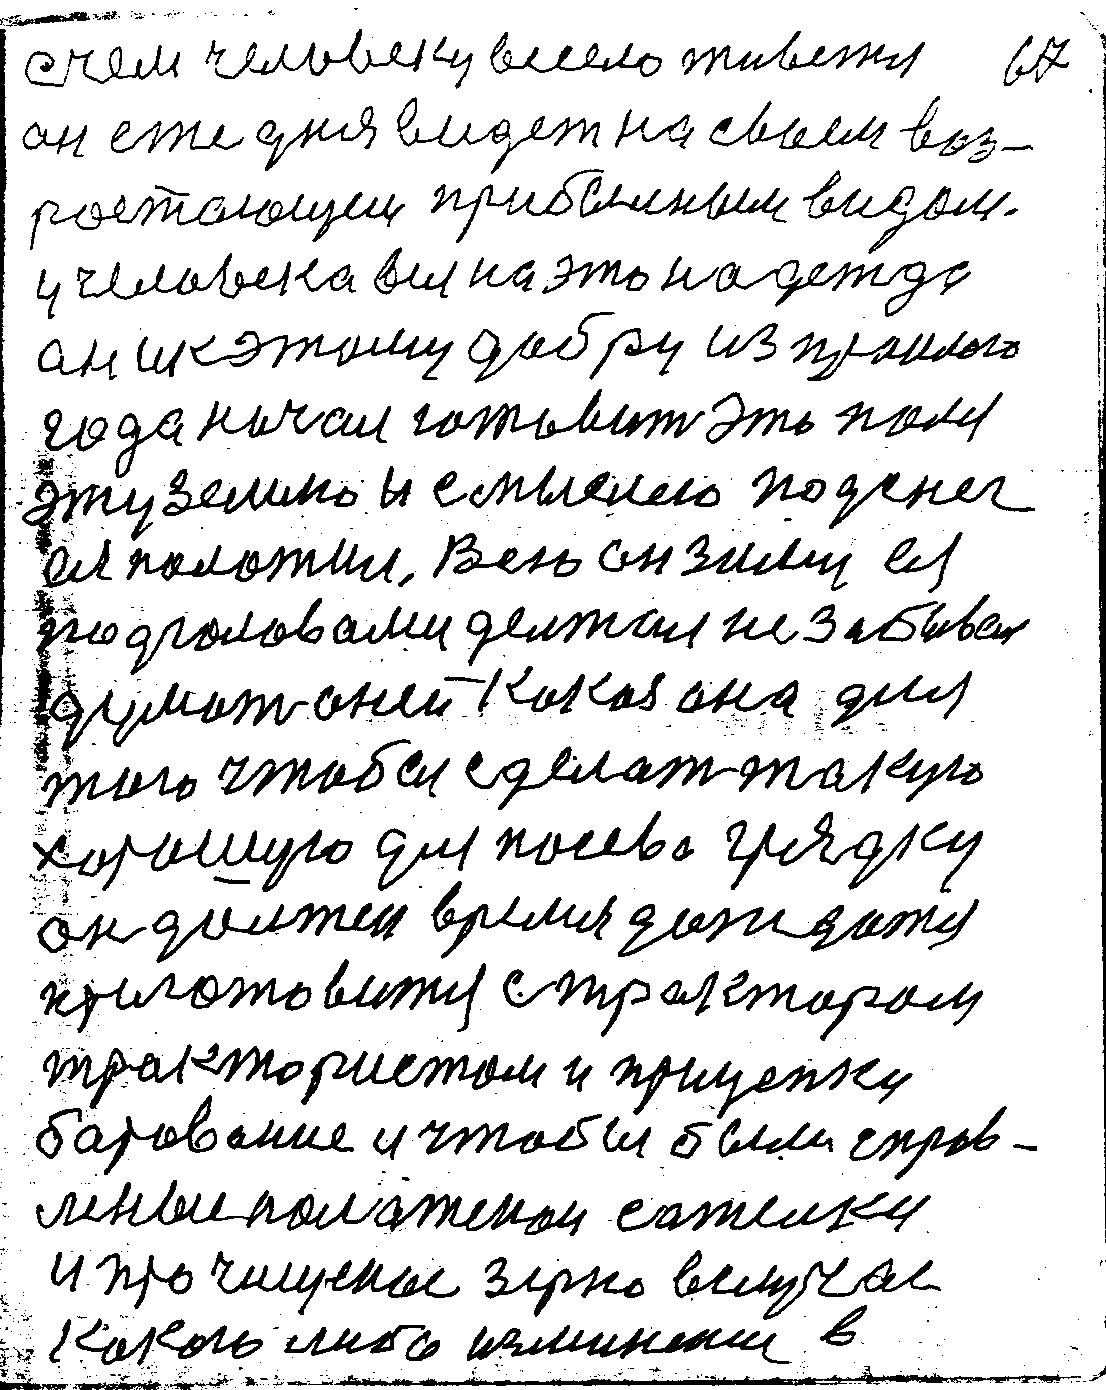 счем человеку весело живется 67
он еже дня видет на своем воз-
ростающем прибыльным видом.
у человека вся на это надежда
он и к этому добру из прошлого
года начал готовит это поля
эту землю и с мыслею по денег
ея положил. Всю он зиму ея
подголовами держал не забывал
думат о ней Какая она для
того чтобы сделат такую
хорошую для посева грядку
он должен время даже дажа
приготовится с трактором
трактористом и прицепку
баравание и чтобы были справ-
леные положеной сажелки
и про чищеное зерно в случае
какого либо изминении в